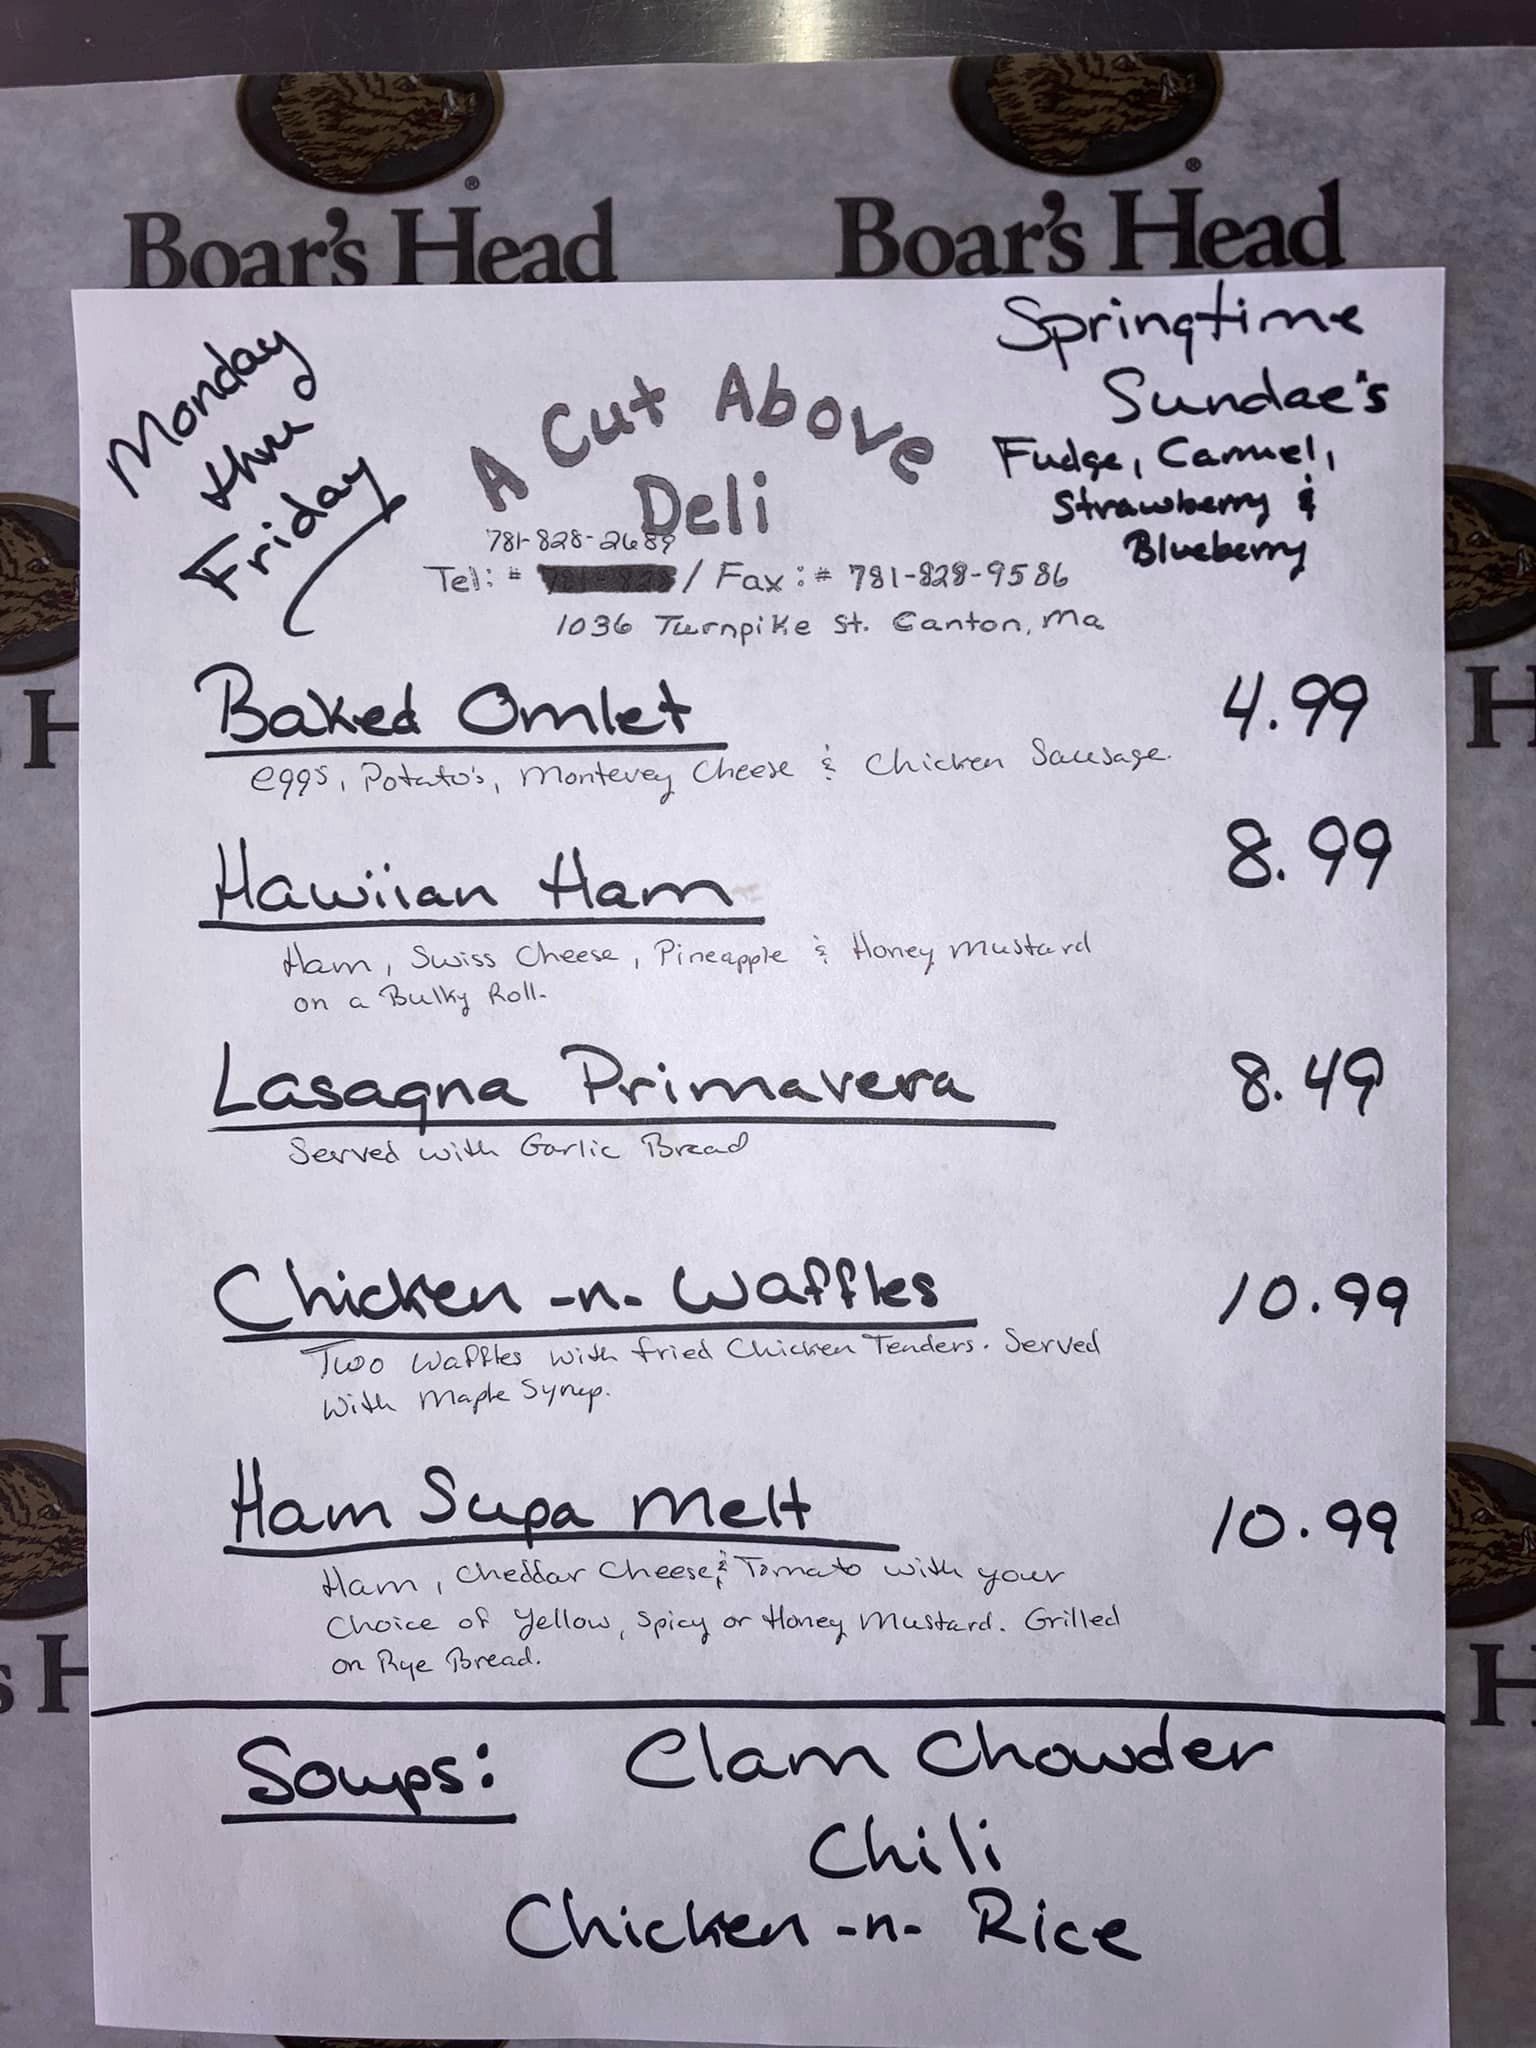 Boar's Head
®
Boar's Head
®
Monday
thru
Friday
A Cut Above
Deli
781-828-2689
Tel: # / Fax: # 781-828-9586
1036 Turnpike St. Canton, Ma
Springtime
Sundae's
Fudge, Carmel,
Strawberry &
Blueberry
Baked Omlet 4.99
eggs, Potato's, Monterey Cheese & Chicken Sausage.
Hawiian Ham 8.99
Ham, Swiss Cheese, Pineapple & Honey Mustard
on a Bulky Roll.
Lasagna Primavera 8.49
Served with Garlic Bread
Chicken -n- Waffles 10.99
Two Waffles with fried Chicken Tenders. Served
with Maple Syrup.
Ham Supa Melt 10.99
Ham, Cheddar Cheese & Tomato with your
Choice of Yellow, Spicy or Honey Mustard. Grilled
on Rye Bread.
Soups: Clam Chowder
Chili
Chicken -n- Rice